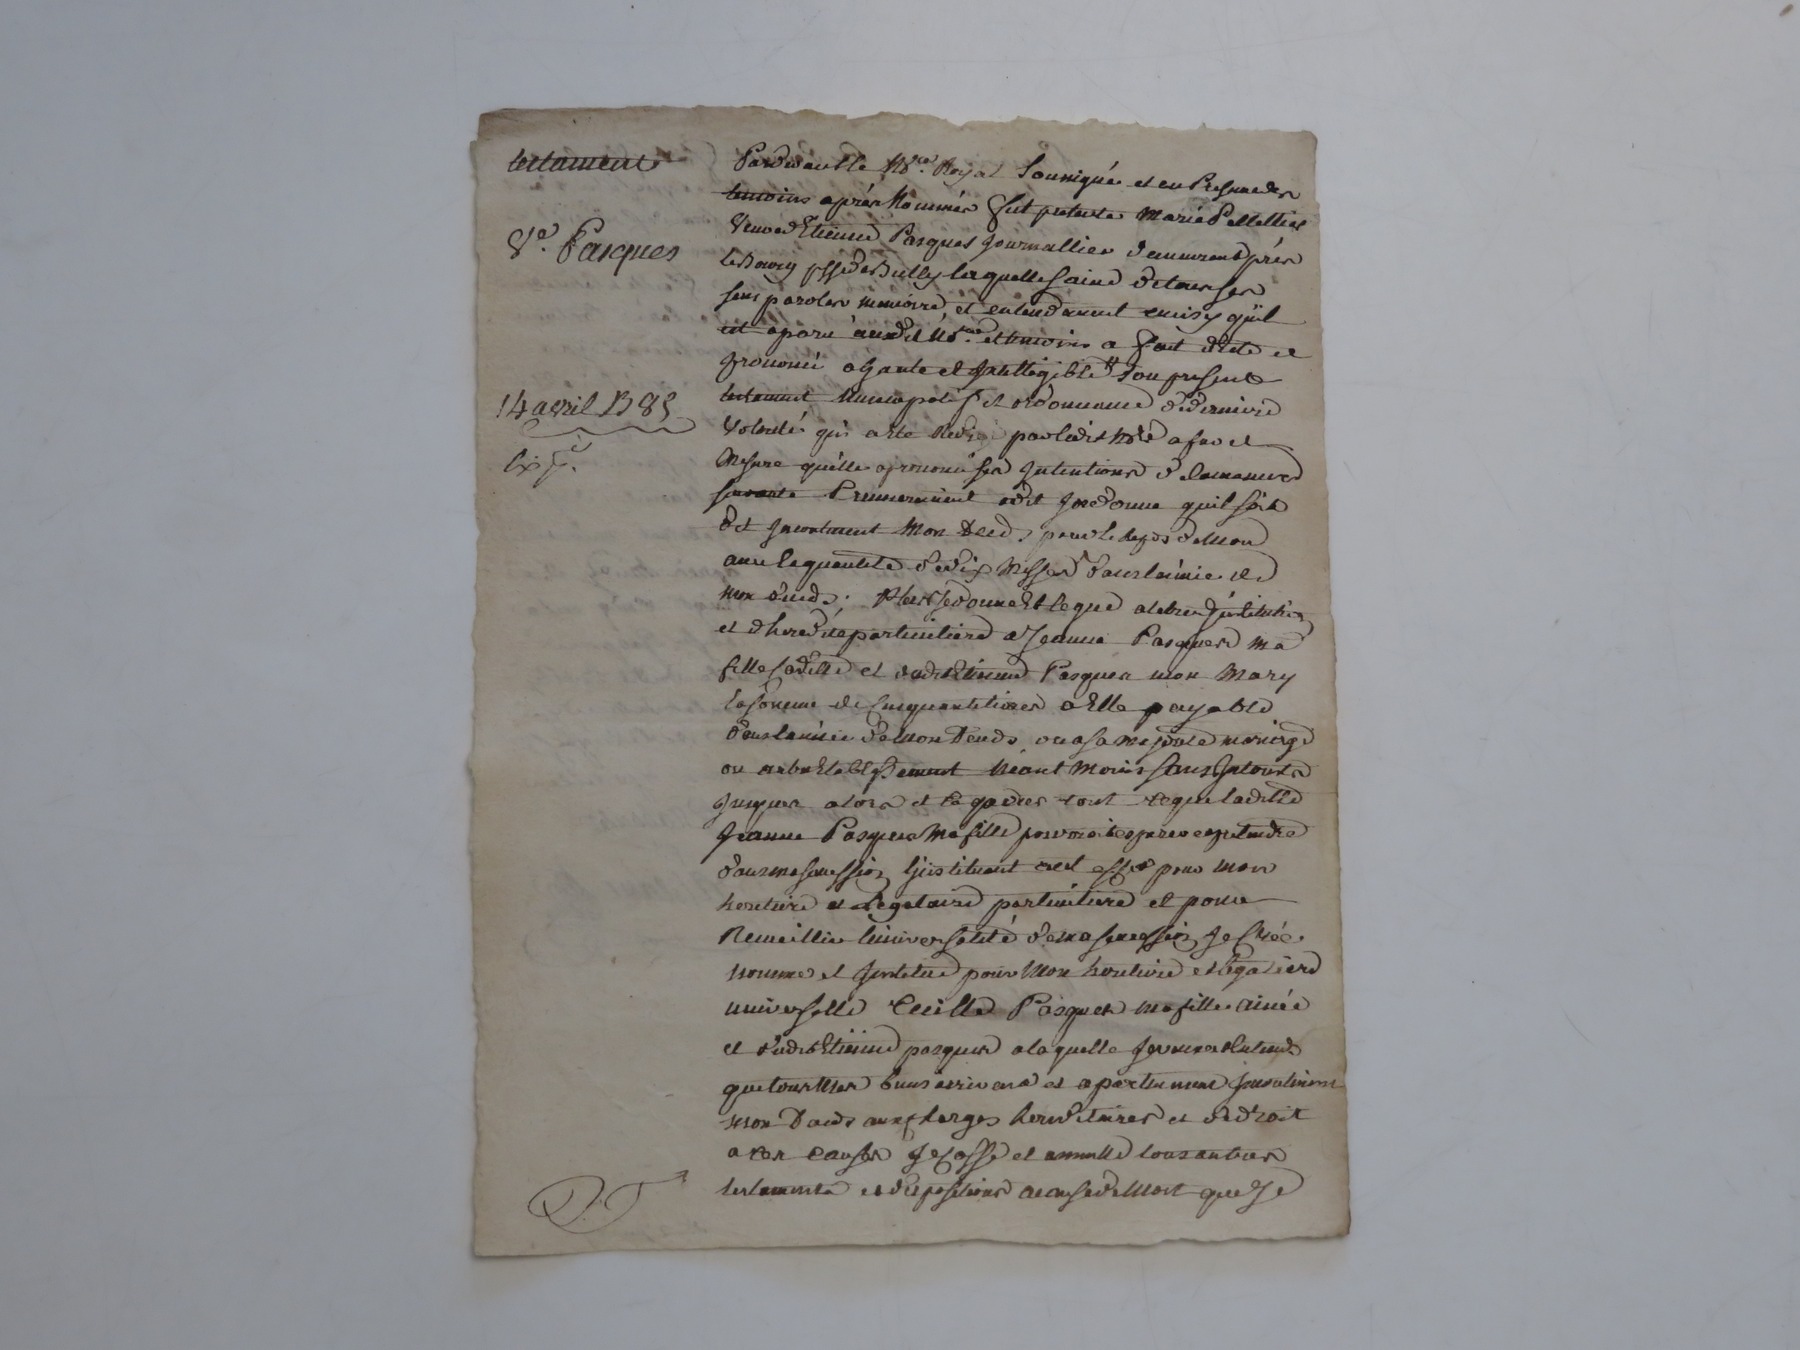 testament
Ve. Pasques
14 avril 1785
Pardevant le Nre. Royal soussigné et en presence des
temoins après nommés fut presente Marie Pellettier
Veuve d'Etienne Pasques journallier demeurant près
le Bourg psse de Bully laquelle saine de tous ses
sens parolles memoire, et entendement ainsy qu'il
est aparu audit Nre. et temoins a fait dicté et
prononcé a haute et Intelligible son present
testament nuncupatif et ordonnance de derniere
Volonté qui a été redigé par ledit Nre a fur et
Mesure quelle a prononcé ses Intentions de la maniere
suivante Premierement a dit J'ordonne quil soit
dit Mon Deces, pour le repos de Mon
ame la quantité de dix Messes dans l'année de
mon deces; Plus Je donne et legue a titre d'institution
et d'heredité particuliere a Jeanne Pasques ma
fille et dudit Etienne Pasques mon Mary
la somme de Cinquante livres a Elle payable
dans l'année de Mon Deces, ou a sa majorité mariage
ou autre Etablissement Néant Moins sans Interets
Jusques alors et ce pour tout ce que laditte
Jeanne Pasques Ma fille pourroit esperer et pretendre
dans ma succession L'instituant en cet effet pour mon
heritiere et Legataire particuliere et pour
Recueillir l'universalité de ma succession, Je Crée
nomme et Institue pour Mon heritiere et legataire
universelle Cecille Pasques ma fille ainée
et dudit Etienne pasques a laquelle Je veux et entend
que tous Mes biens arrivent et apartiennent
Mon Deces aux charges hereditaires et de droit
a ces causes Je casse et annulle tous autres
testaments et dispositions a cause de Mort que Je